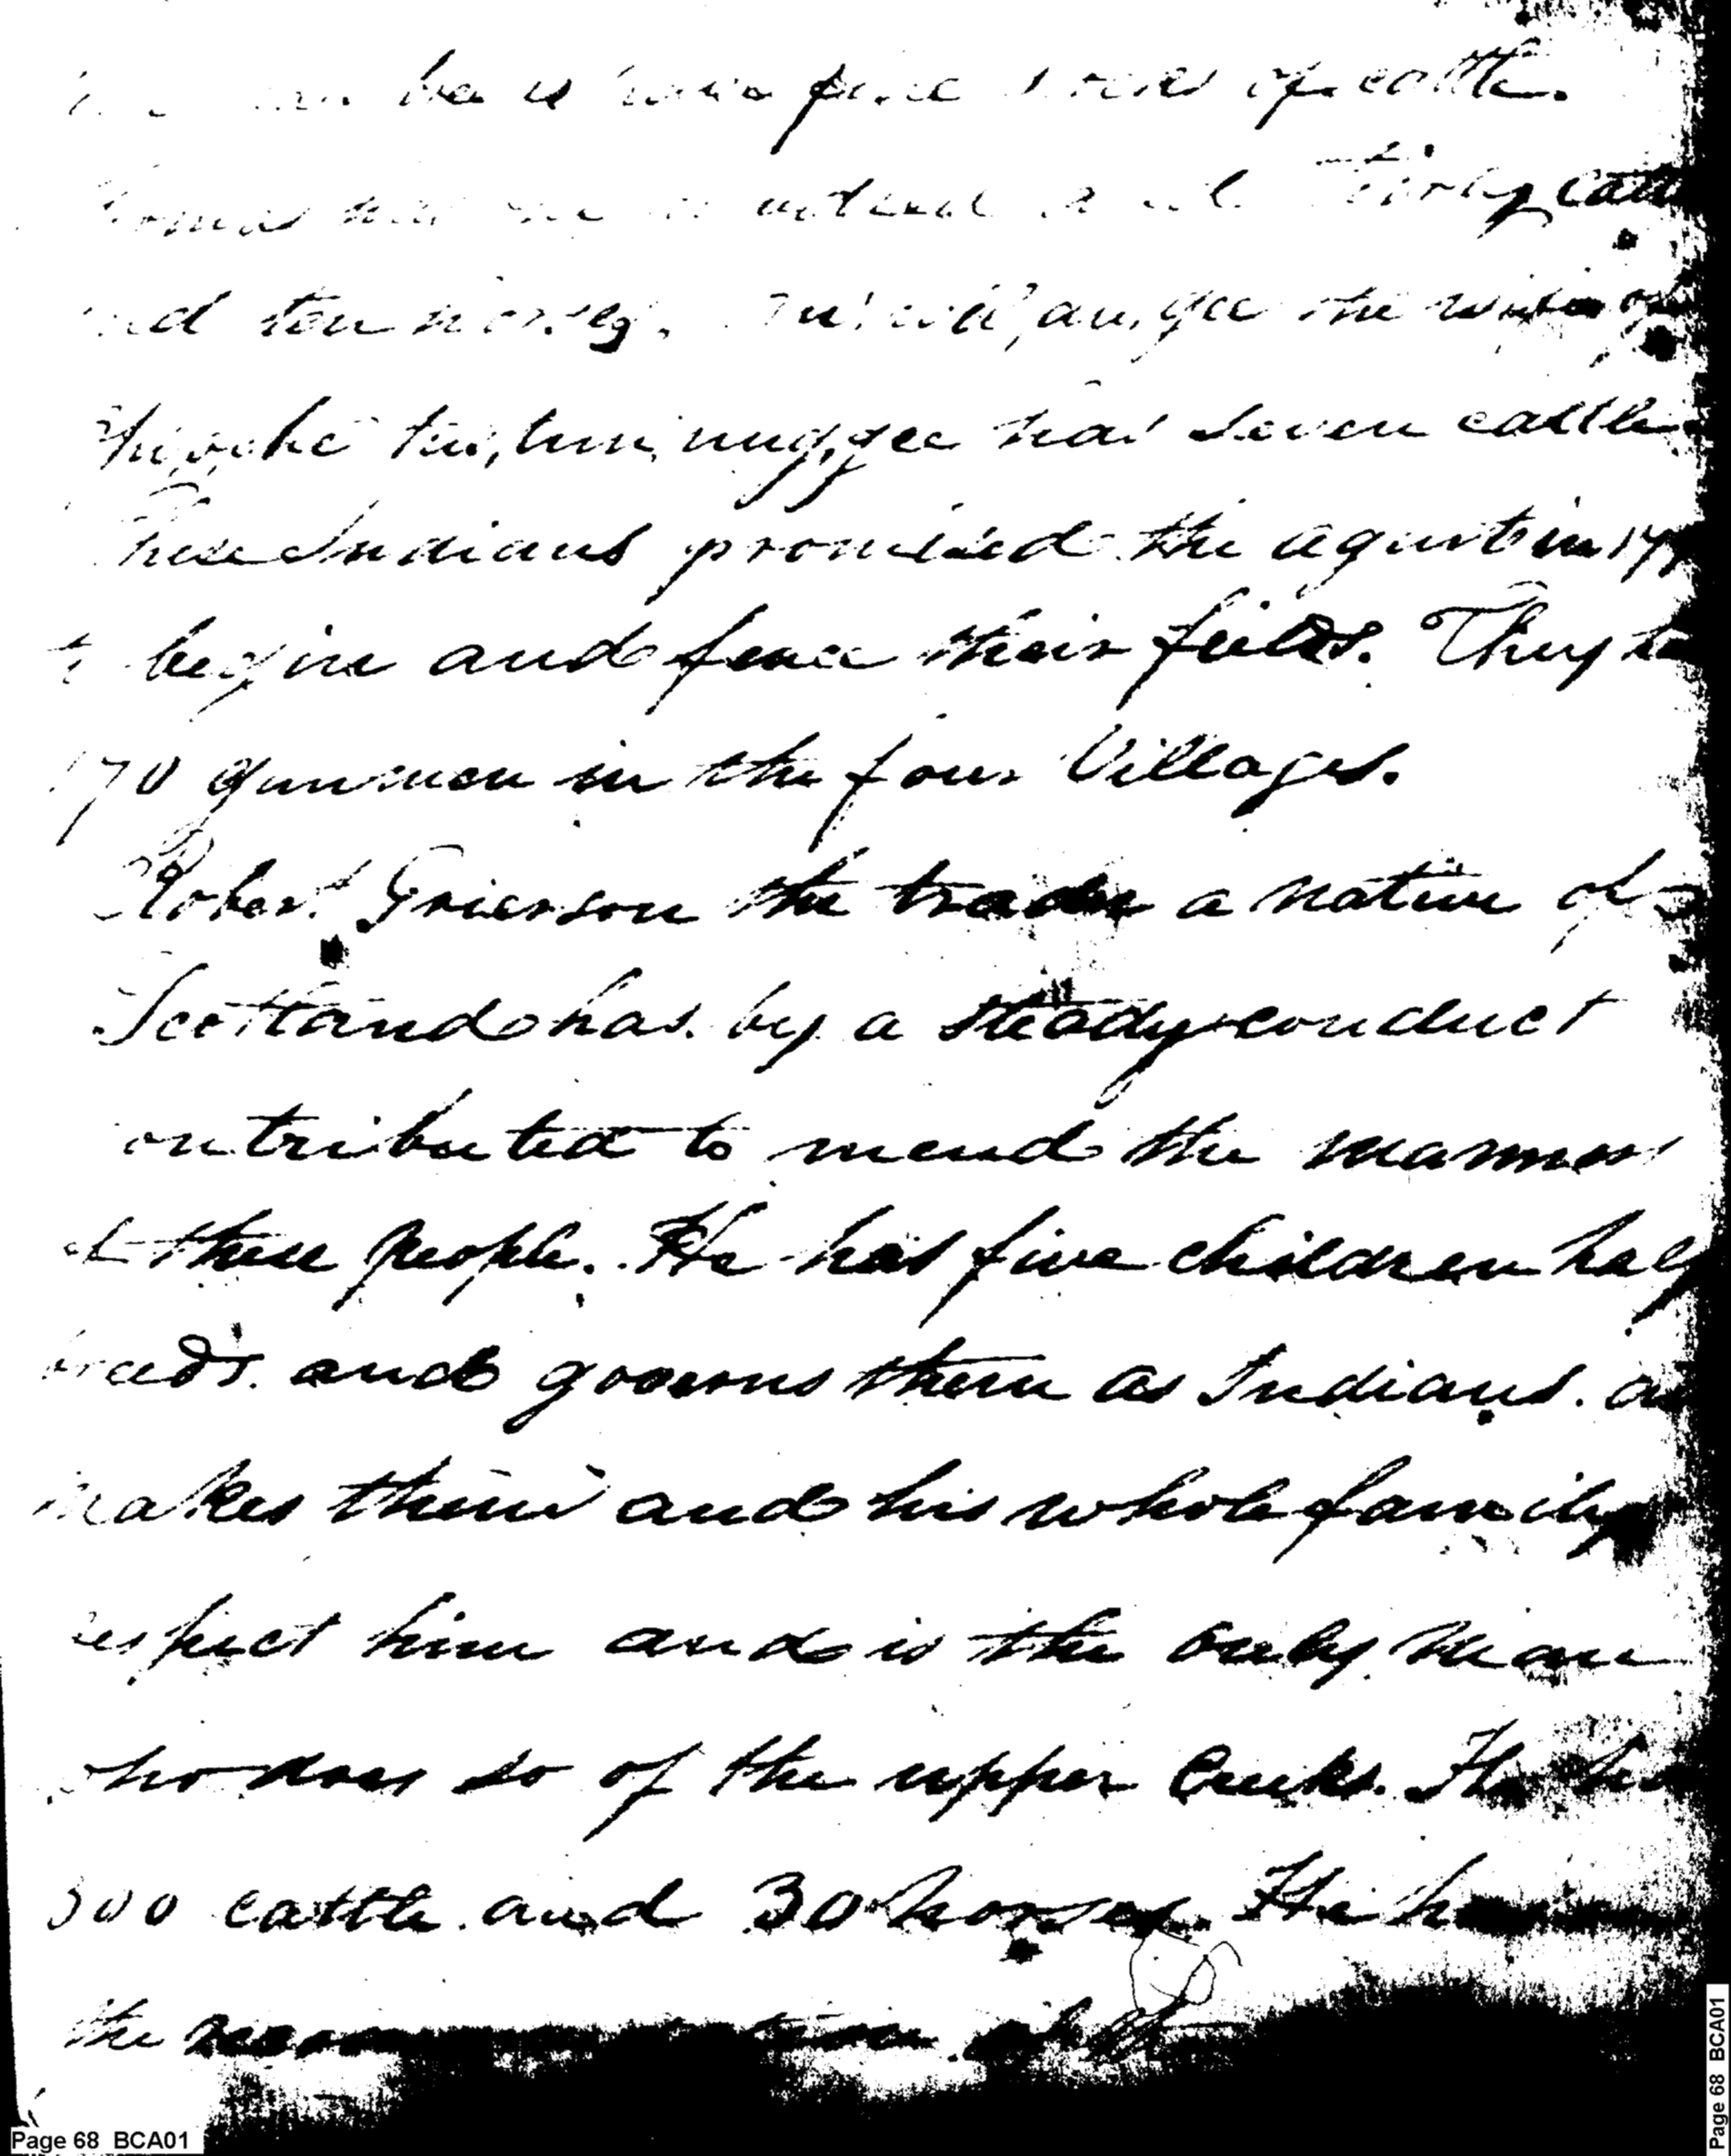 be is have fine stocks of cattle.
cattle
and ten horses. the wife of
has seven cattle.
These Indians promised the agent in
to begin and fence their fields. They
170 gunmen in the four Villages.
Robert Grierson the trader a native of
Scotland has by a steady conduct
contributed to mend the manners
of these people. He has five children half
breeds and governs them as Indians. and
makes them and his whole family
respect him and is the only man
who does so of the upper Creeks. He has
300 cattle and 30 horses. He has
the
Page 68 BCA01
Page 68 BCA01